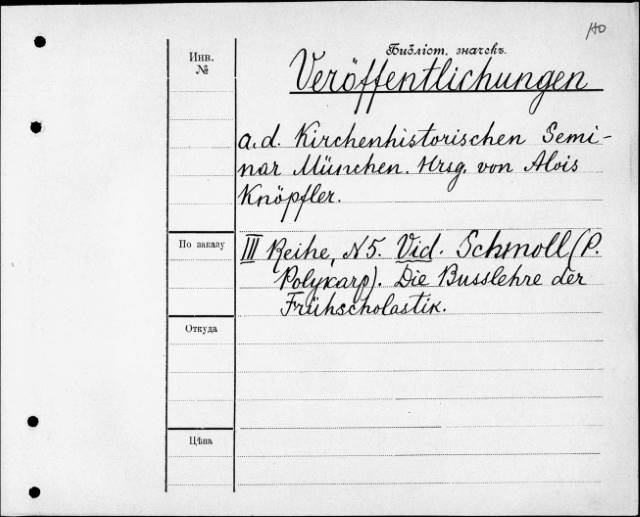 110
Библіот. значекъ.
Инв.
№
Veröffentlichungen
a. d. Kirchenhistorischen Semi-
nar München. Hrsg. von Alois
Knöpfler.
По заказу
III Reihe, N5. Vid. Schmoll (P.
Polykarp). Die Busslehre der
Frühscholastik.
Откуда
Цѣна